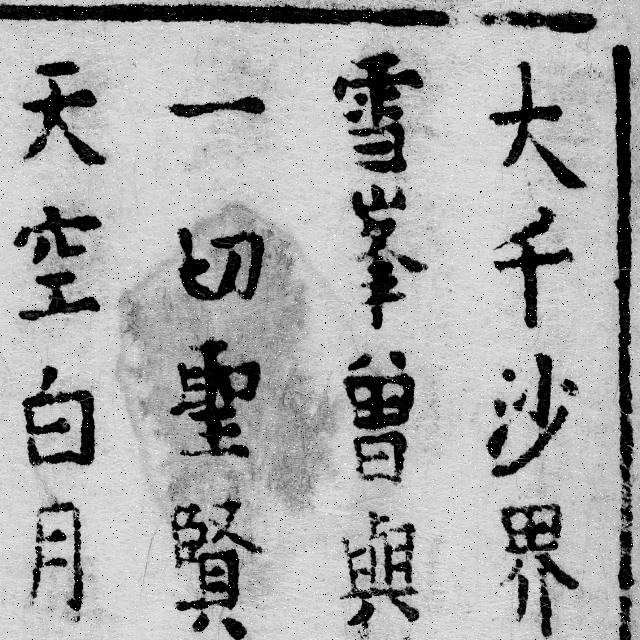 大千沙界
雪峯曽與
一切聖賢
天空白月